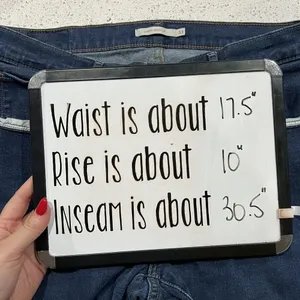 Waist is about 17.5"
Rise is about 10"
Inseam is about 30.5"